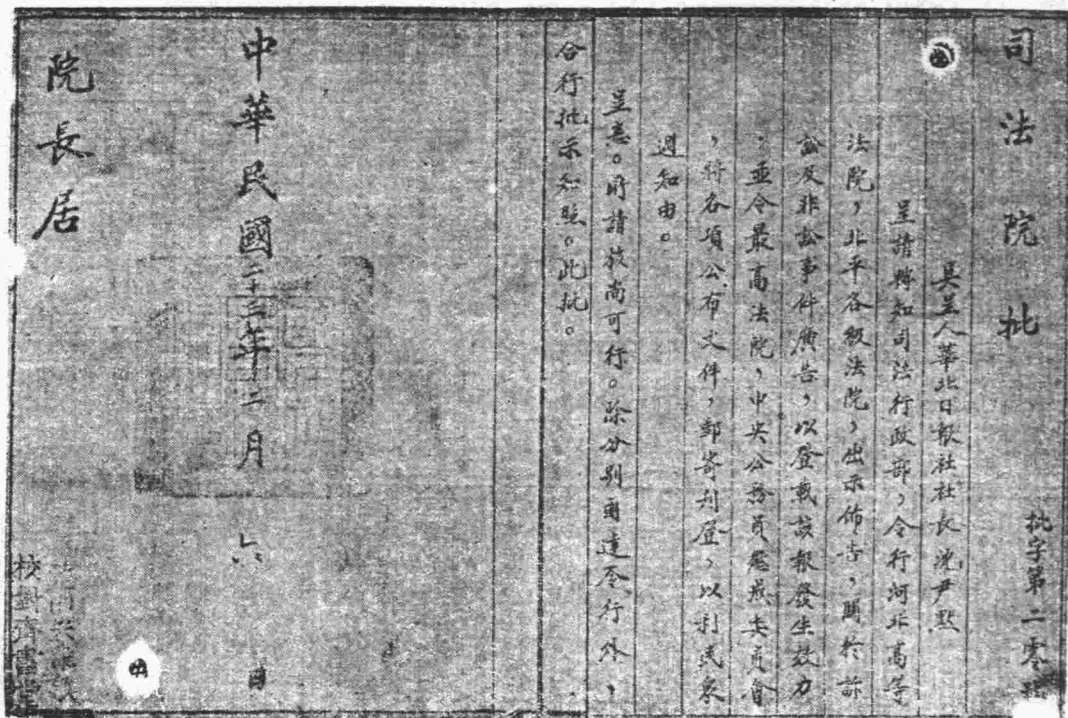 司法院批
批字第二零號
具呈人華北日報社社長沈尹默
呈請轉知司法行政部，令行河北高等
法院，北平各級法院，出示佈告，關於訴
訟及非訟事件廣告，以登載該報發生效力
：並令最高法院，中央公務員懲戒委員會
，將各項公布文件，郵寄刊登，以利民衆
週知由。
呈悉。所請核尚可行。除分別函達令行外，
合行批示知照。此批。
中華民國二十三年十二月六日
院長居
校對齊雲